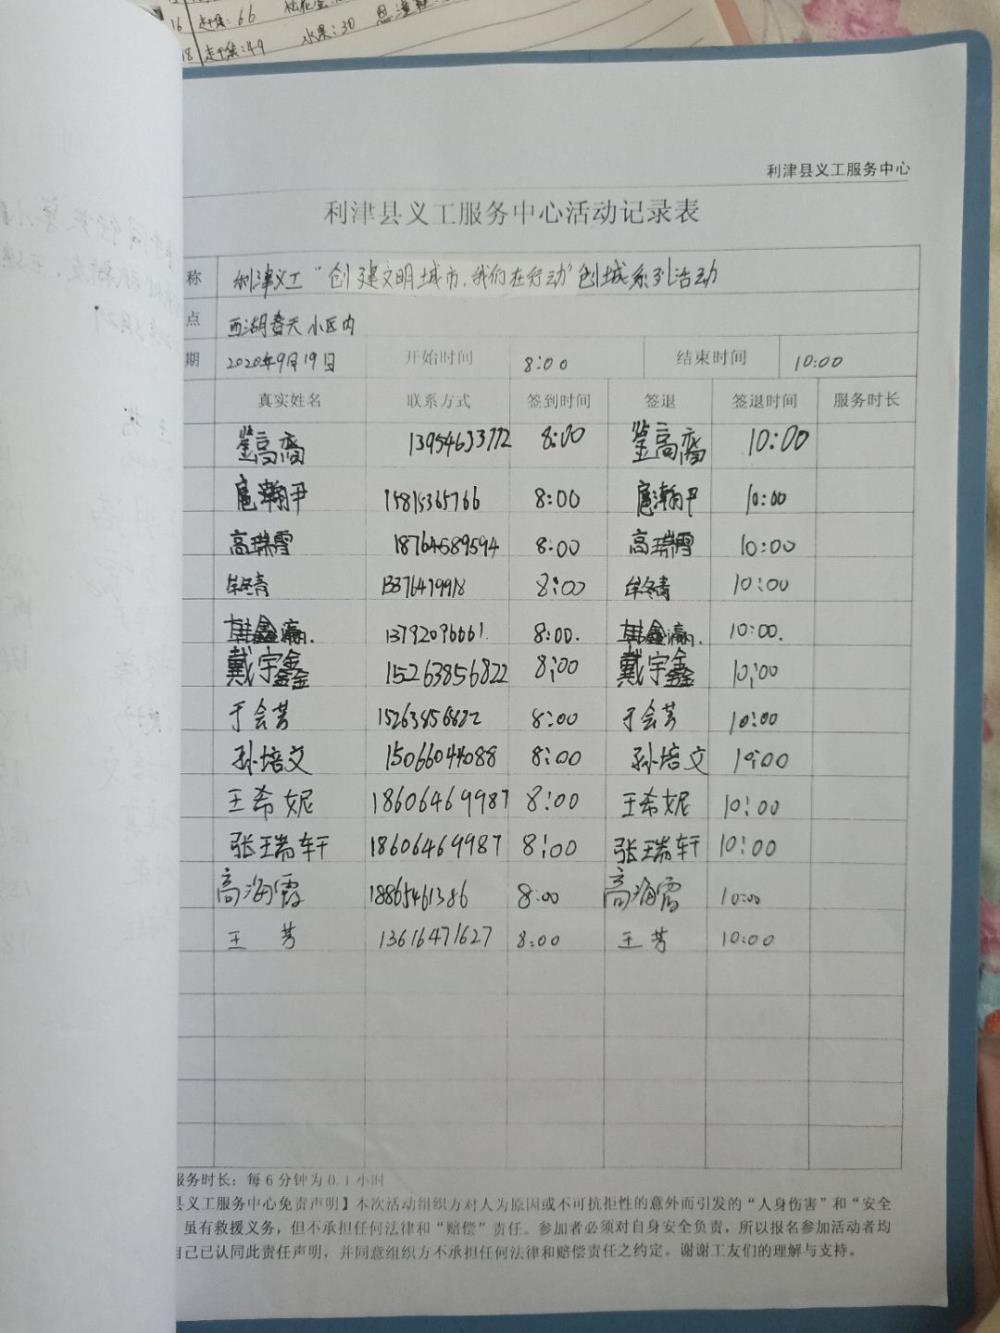 16 走十集:66
18 走十集:49 水果:30
利津县义工服务中心
利津县义工服务中心活动记录表
称 利津义工"创建文明城市,我们在行动"创城系列活动
点 西湖春天小区内
期 2020年9月19日 开始时间 8:00 结束时间 10:00
真实姓名 联系方式 签到时间 签退 签退时间 服务时长
高裔 13954633772 8:00 高裔 10:00
扈瀚尹 15815365766 8:00 扈瀚尹 10:00
高瑞雪 18764689594 8:00 高瑞雪 10:00
牟冬青 8:00 牟冬青 10:00
韩鑫瀛. 8:00. 韩鑫瀛. 10:00.
戴宇鑫 15263856822 8:00 戴宇鑫 10:00
于会芳 15263856822 8:00 于会芳 10:00
孙培文 15066044088 8:00 孙培文 10:00
王希妮 18606469987 8:00 王希妮 10:00
张瑞轩 18606469987 8:00 张瑞轩 10:00
高海霞 18865461386 8:00 高海霞 10:00
王芳 13616471627 8:00 王芳 10:00
服务时长:每6分钟为0.1小时
县义工服务中心免责声明】本次活动组织方对人为原因或不可抗拒性的意外而引发的"人身伤害"和"安全
虽有救援义务,但不承担任何法律和"赔偿"责任。参加者必须对自身安全负责,所以报名参加活动者均
自己已认同此责任声明,并同意组织方不承担任何法律和赔偿责任之约定。谢谢工友们的理解与支持。